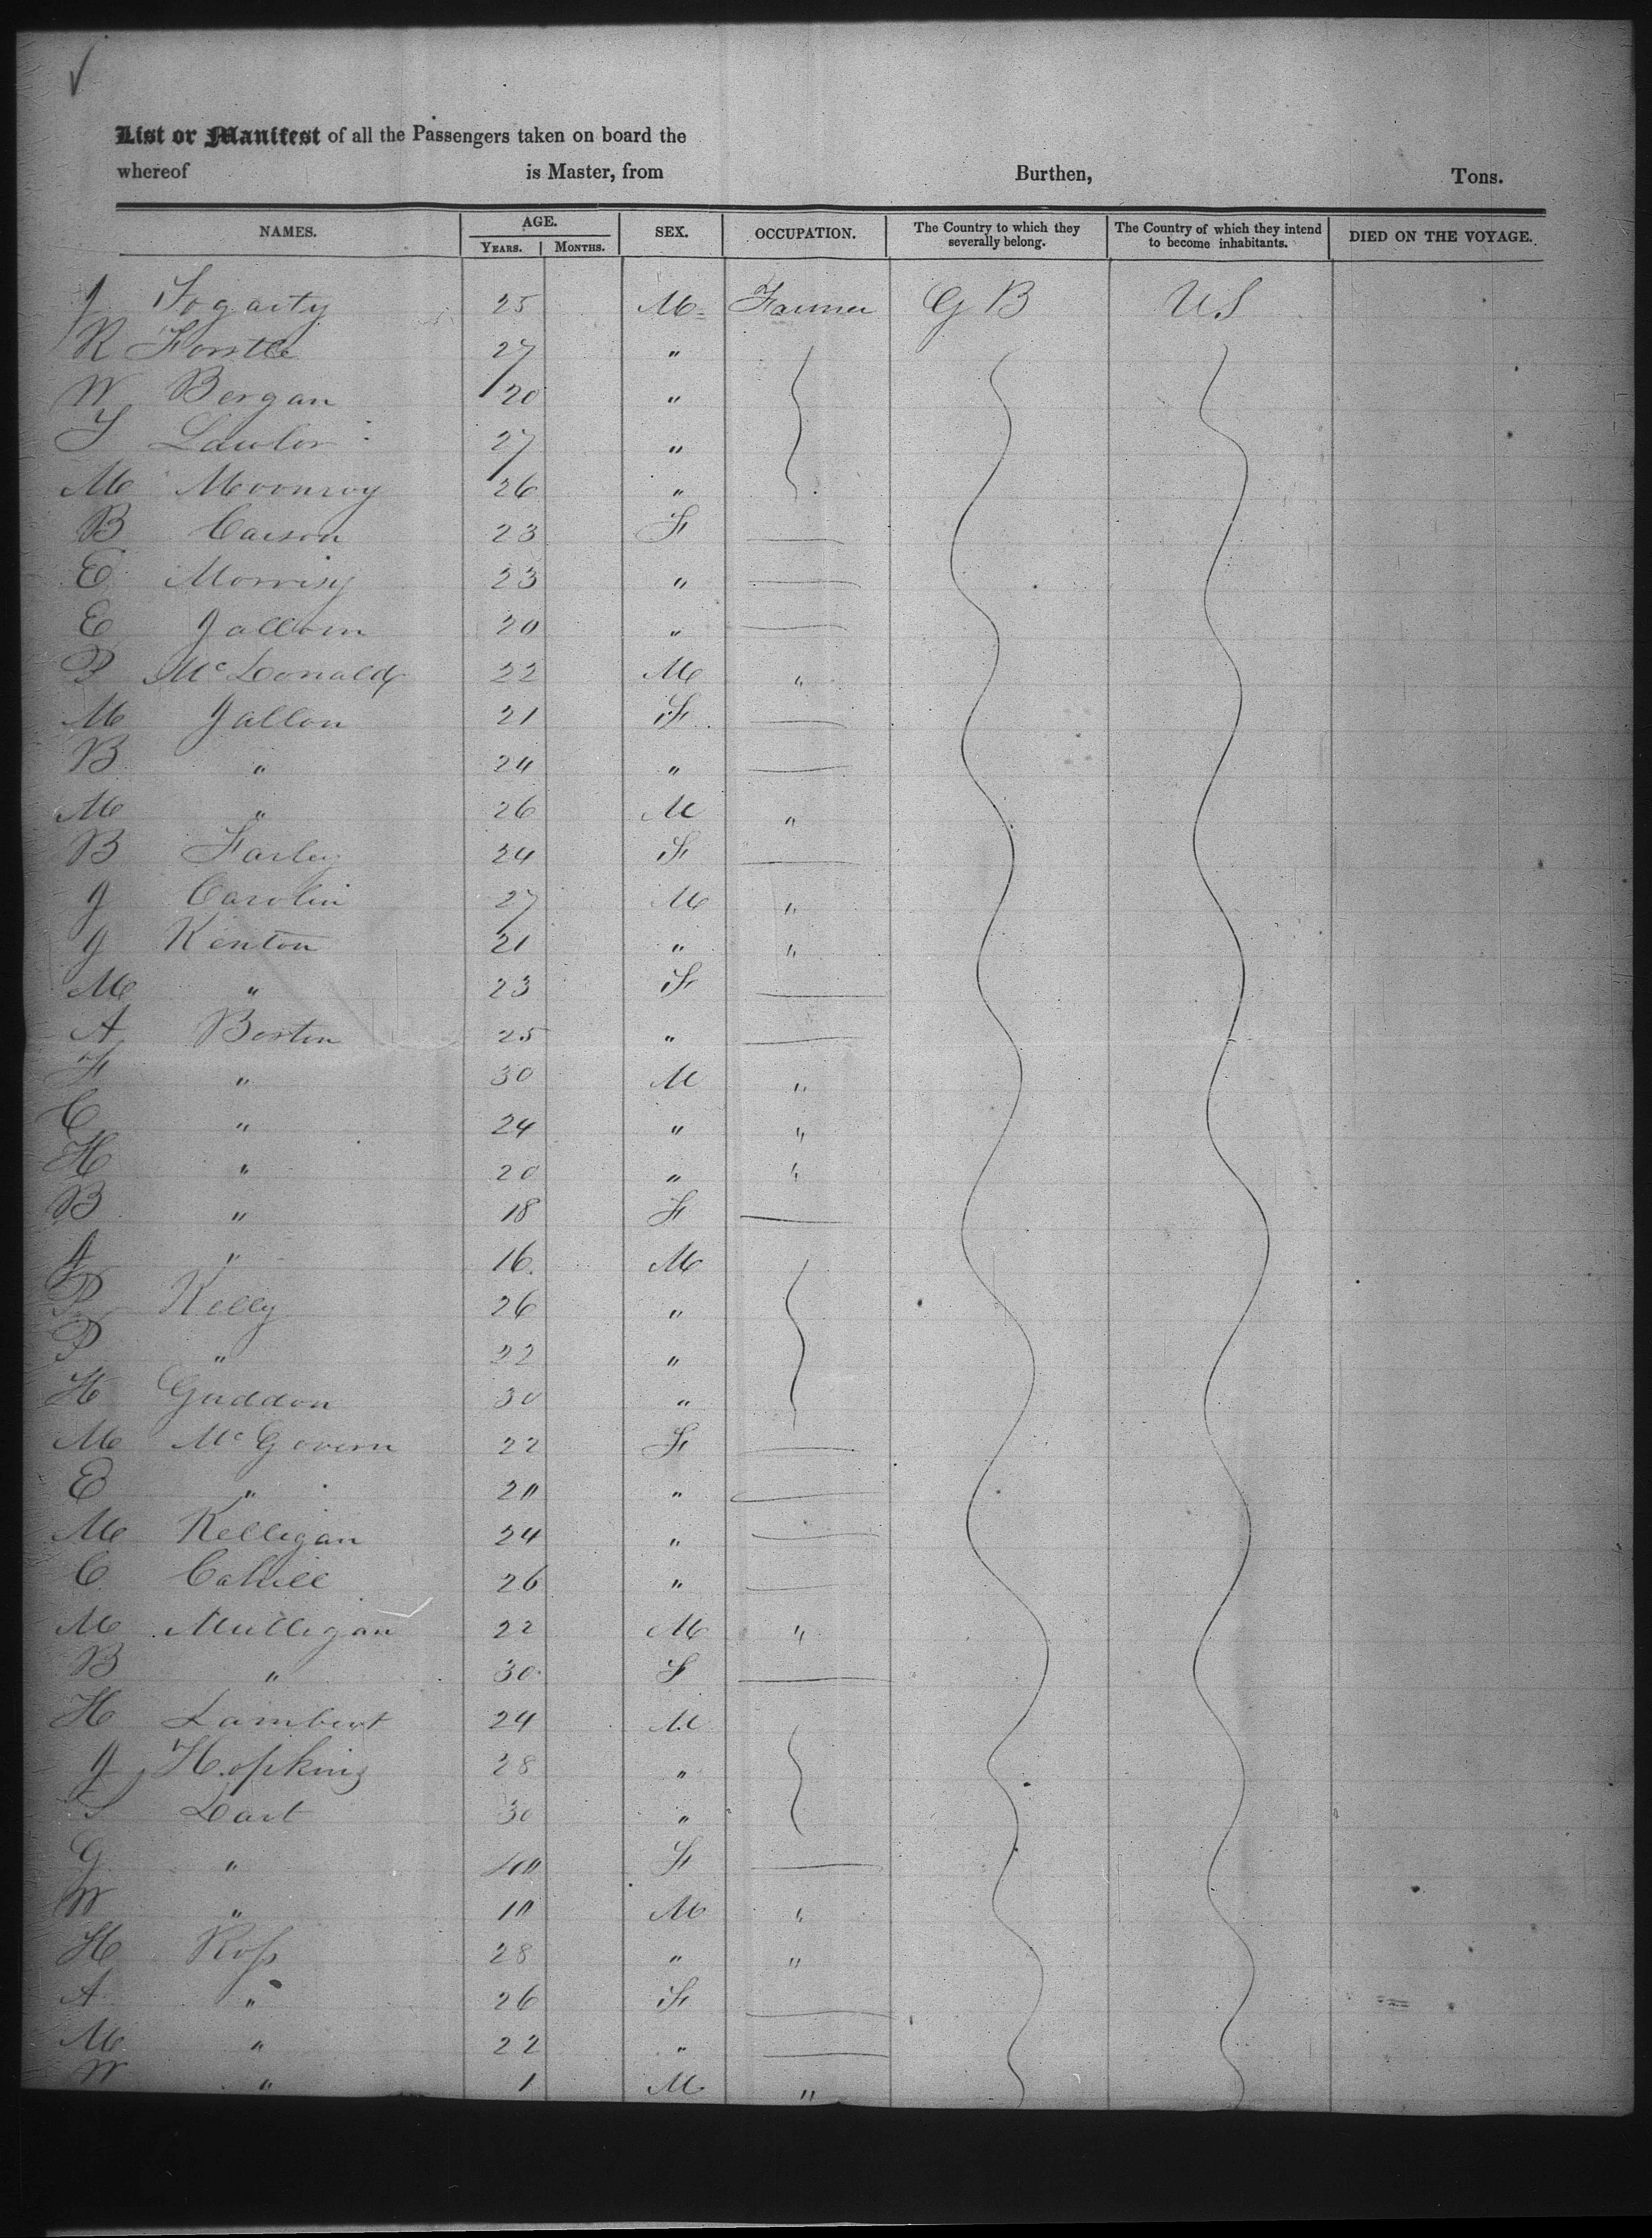 List or Manifest of all the Passengers taken on board the
whereof is Master, from Burthen, Tons.
NAMES. AGE. SEX. OCCUPATION. The Country to which they severally belong. The Country of which they intend to become inhabitants. DIED ON THE VOYAGE.
YEARS. MONTHS.
J Fogarty 25 M Farmer G B U S
R 27 "
W Bergan 20 "
Lawlor 27 "
M 26 "
B Carson 23 F
E Morrisy 23 "
E 20 "
P McDonald 22 M "
M Jallon 21 F
B " 24 "
M " 26 M "
B Farley 24 F
J Carolin 27 M "
J Kenton 21 " "
M " 23 F
A Bostin 25 "
F " 30 M "
C " 24 " "
H " 20 " "
B " 18 F
" 16 M
P Kelly 26 "
P " 22 "
H Gaddon 30 "
M McGovern 22 F
E " 20 "
M Kelligan 24 "
C Cahill 26 "
M Mulligan 22 M "
B " 30 F
H Lambert 24 M
J Hopkins 28 "
Dart 30 "
G " F
W " M "
H Ross 28 " "
A " 26 F
M " 22 "
W " 1 M "